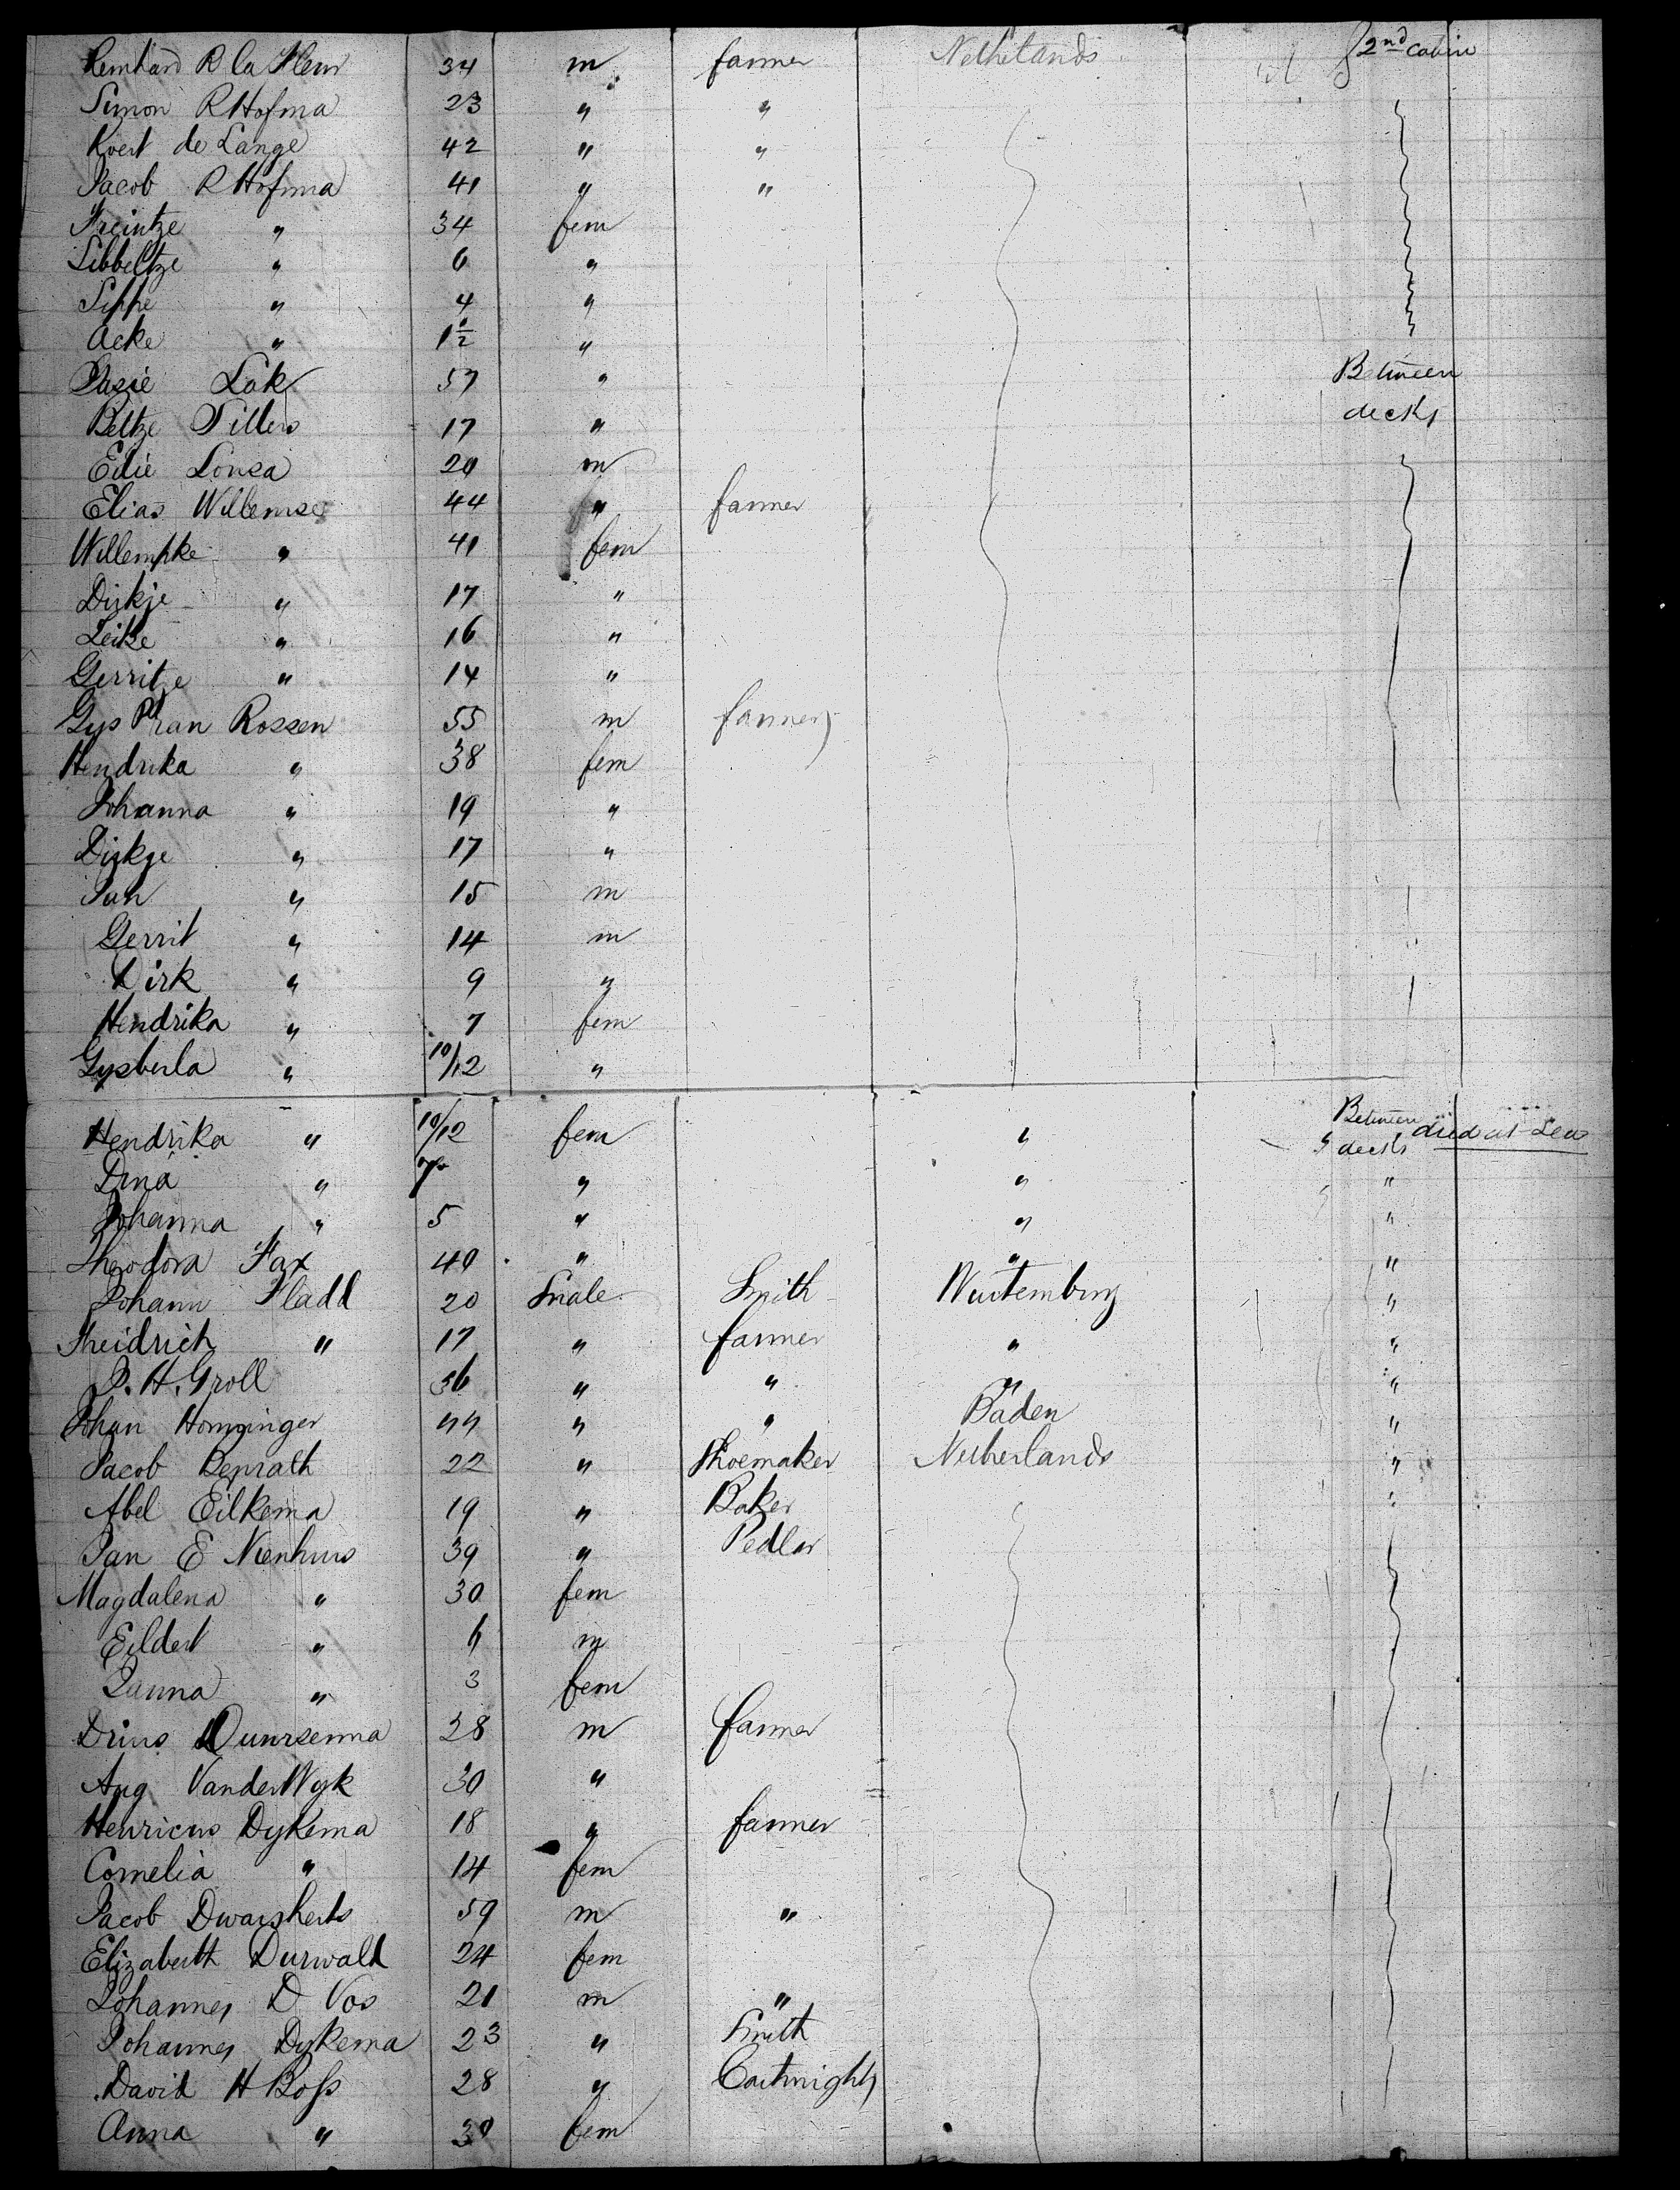 Reinhard R la Fleur 34 m farmer Nethelands 2nd cabin
Simon R Hofma 23 " "
Koert de Lange 42 " "
Jacob R Hofma 41 " "
Freintze " 34 fem
Sibbeltze " 6 "
Sippe " 4 "
Acke " 1 1/2 "
Lak 57 " Between
Beltze Tillers 17 " decks
Edie Lonsa 20 m
Elias Willemse 44 " farmer
Willempke " 41 fem
Dirkje " 17 "
Leike " 16 "
Gerritze " 14 "
Gys van Rossen 55 m farmer
Hendrika " 38 fem
Johanna " 19 "
Dirkje " 17 "
Jan " 15 m
Gerrit " 14 m
Dirk " 9 "
Hendrika " 7 fem
Gysberta " 10/12 "
Hendrika " 10/12 fem " Between decks died at Sea
Dina " " " "
Johanna " 5 " " "
Theodora Fax 40 " " "
Johann Fladd 20 male Smith Wurtemburg "
Freidrich " 17 " farmer " "
J. H. Groll 36 " " " "
Johan Homminger 44 " " Baden "
Jacob Benrath 22 " Shoemaker Netherlands "
Abel Eilkema 19 " Baker "
Jan E Nienhuis 39 " Pedlar
Magdalena " 30 fem
Eildert " 6 m
Janna " 3 fem
Drius Duursema 28 m farmer
Aug VanderWyk 30 "
Henricus Dykema 18 " farmer
Cornelia " 14 fem
Jacob 59 m "
Elizabeth Durwald 24 fem
Johannes D Vos 21 m "
Johannes Dykema 23 " Smith
David H Boss 28 " Cartwright
Anna " 30 fem